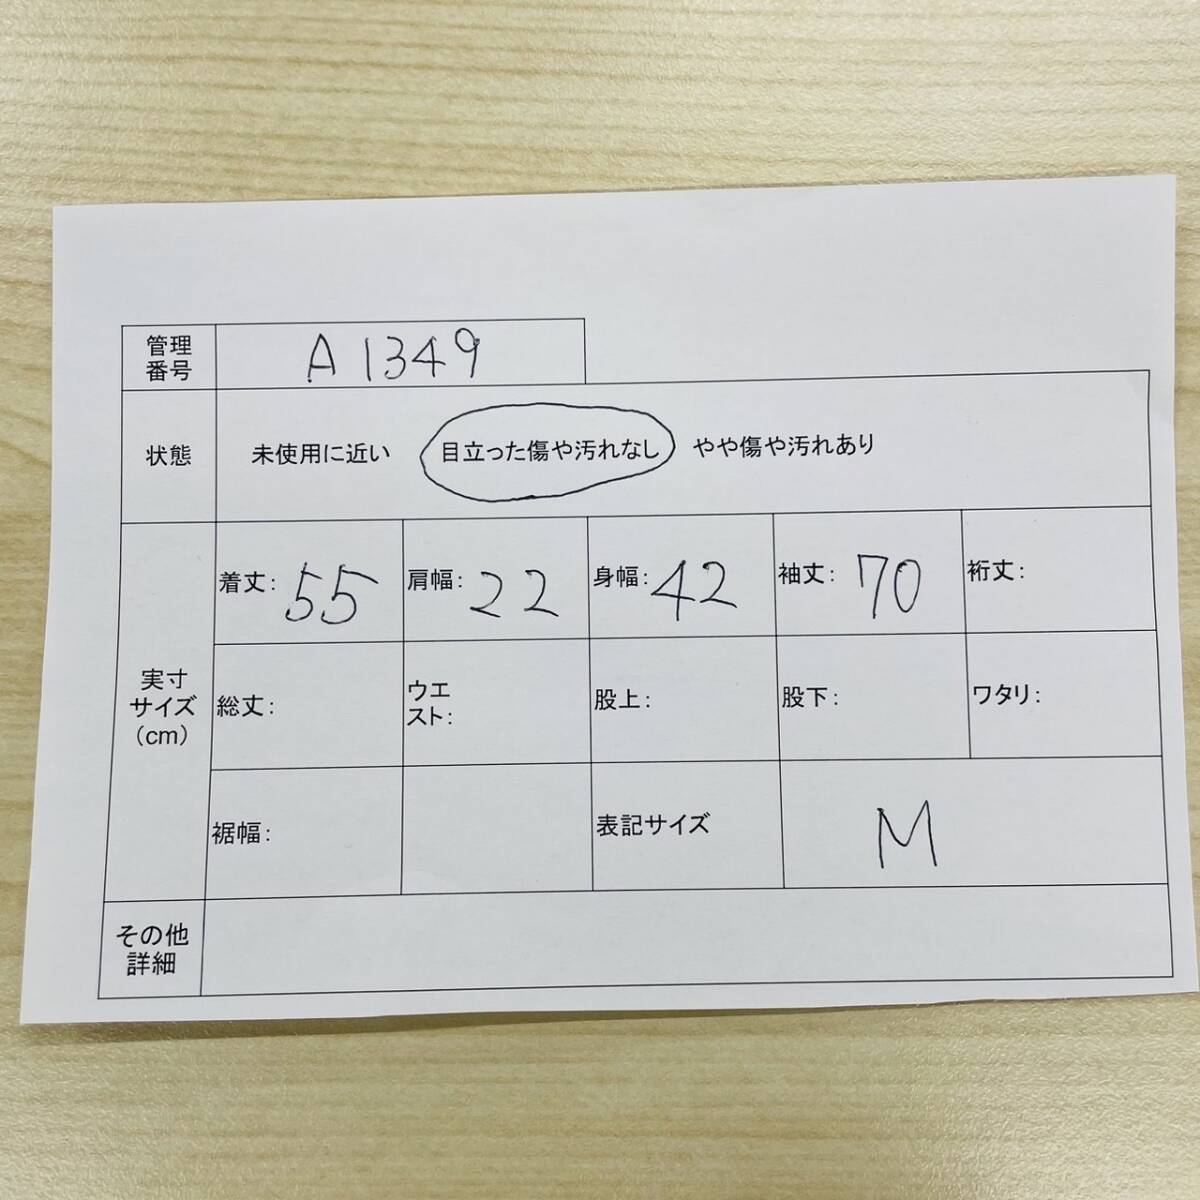 管理
番号
A1349
状態
未使用に近い 目立った傷や汚れなし やや傷や汚れあり
実寸
サイズ
(cm)
着丈: 55
肩幅: 22
身幅: 42
袖丈: 70
裄丈:
総丈:
ウエ
スト:
股上:
股下:
ワタリ:
裾幅:
表記サイズ
M
その他
詳細